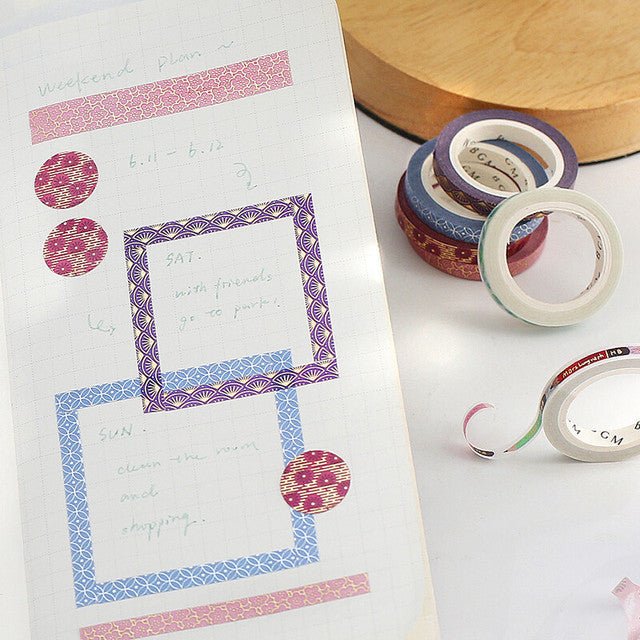 weekend plan ~
6.11 - 6.12
SAT.
with friends
go to park!
SUN.
clean the room
and
shopping.
BGM
BGM
HB